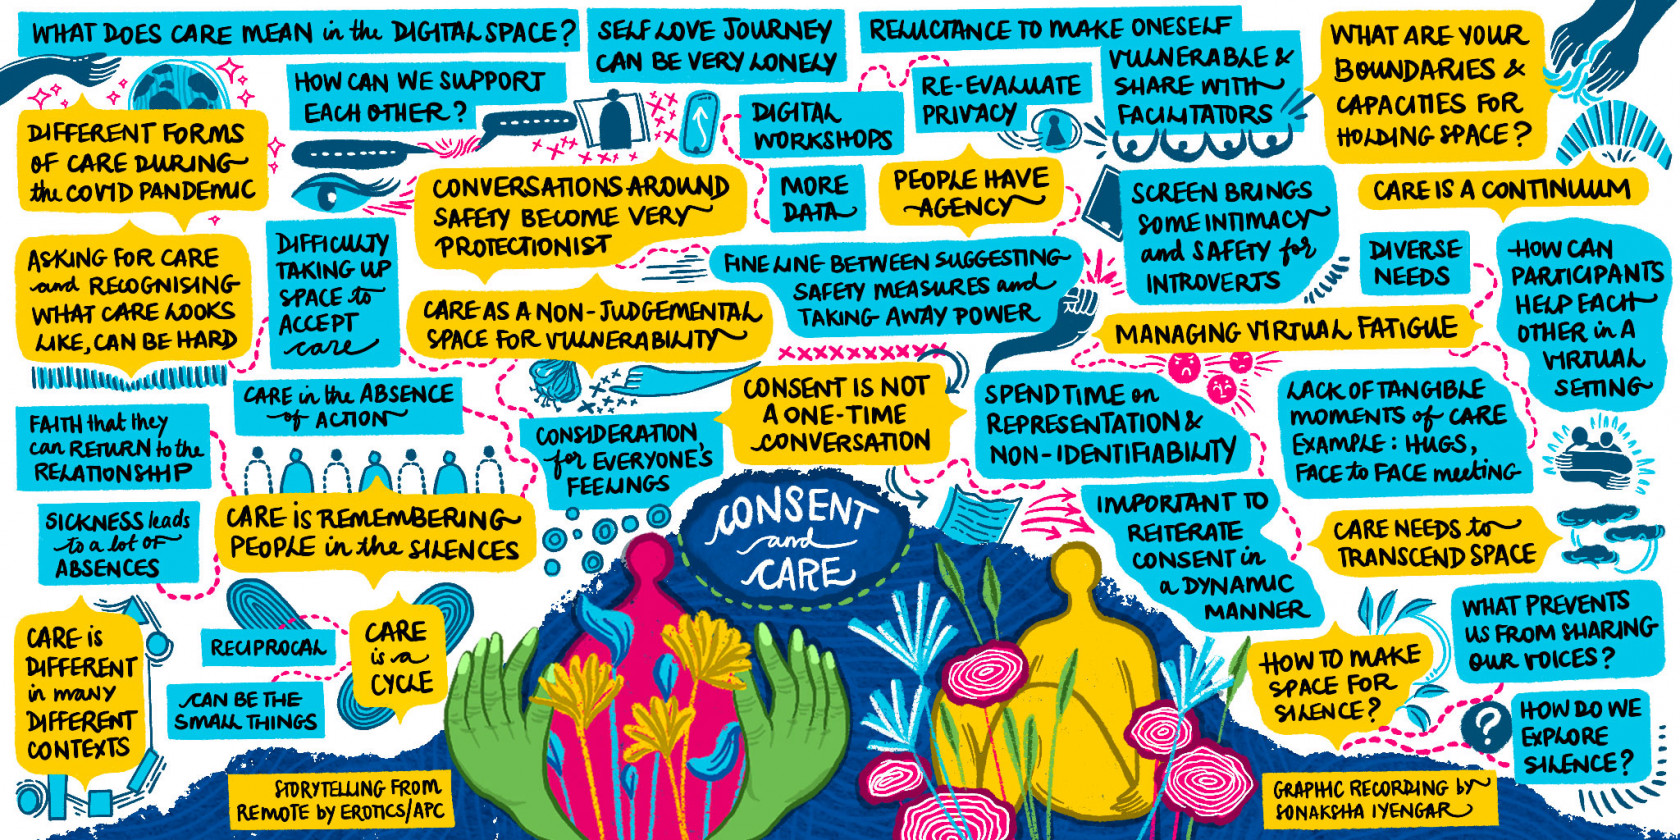 WHAT DOES CARE MEAN in the DIGITAL SPACE?
SELF LOVE JOURNEY
CAN BE VERY LONELY
RELUCTANCE TO MAKE ONESELF
VULNERABLE &
SHARE WITH
FACILITATORS
WHAT ARE YOUR
BOUNDARIES &
CAPACITIES FOR
HOLDING SPACE?
HOW CAN WE SUPPORT
EACH OTHER?
DIGITAL
WORKSHOPS
RE-EVALUATE
PRIVACY
DIFFERENT FORMS
OF CARE DURING
the COVID PANDEMIC
CONVERSATIONS AROUND
SAFETY BECOME VERY
PROTECTIONIST
MORE
DATA
PEOPLE HAVE
AGENCY
SCREEN BRINGS
SOME INTIMACY
and SAFETY for
INTROVERTS
CARE IS A CONTINUUM
ASKING FOR CARE
and RECOGNISING
WHAT CARE LOOKS
LIKE, CAN BE HARD
DIFFICULTY
TAKING UP
SPACE to
ACCEPT
care
CARE AS A NON-JUDGEMENTAL
SPACE FOR VULNERABILITY
FINE LINE BETWEEN SUGGESTING
SAFETY MEASURES and
TAKING AWAY POWER
DIVERSE
NEEDS
HOW CAN
PARTICIPANTS
HELP EACH
OTHER in A
VIRTUAL
SETTING
MANAGING VIRTUAL FATIGUE
CARE in the ABSENCE
of ACTION
CONSENT IS NOT
A ONE-TIME
CONVERSATION
SPEND TIME on
REPRESENTATION &
NON-IDENTIFIABILITY
LACK OF TANGIBLE
MOMENTS of CARE
EXAMPLE: HUGS,
FACE to FACE meeting
FAITH that they
can RETURN to the
RELATIONSHIP
CONSIDERATION,
for EVERYONE'S
FEELINGS
SICKNESS leads
to a lot of
ABSENCES
CARE is REMEMBERING
PEOPLE in the SILENCES
CONSENT
and
CARE
IMPORTANT TO
REITERATE
CONSENT in
a DYNAMIC
MANNER
CARE NEEDS to
TRANSCEND SPACE
CARE is
DIFFERENT
in many
DIFFERENT
CONTEXTS
RECIPROCAL
CARE
is a
CYCLE
CAN BE THE
SMALL THINGS
HOW TO MAKE
SPACE FOR
SILENCE?
WHAT PREVENTS
US FROM SHARING
OUR VOICES?
?
HOW DO WE
EXPLORE
SILENCE?
STORYTELLING FROM
REMOTE BY EROTICS/APC
GRAPHIC RECORDING by
SONAKSHA IYENGAR